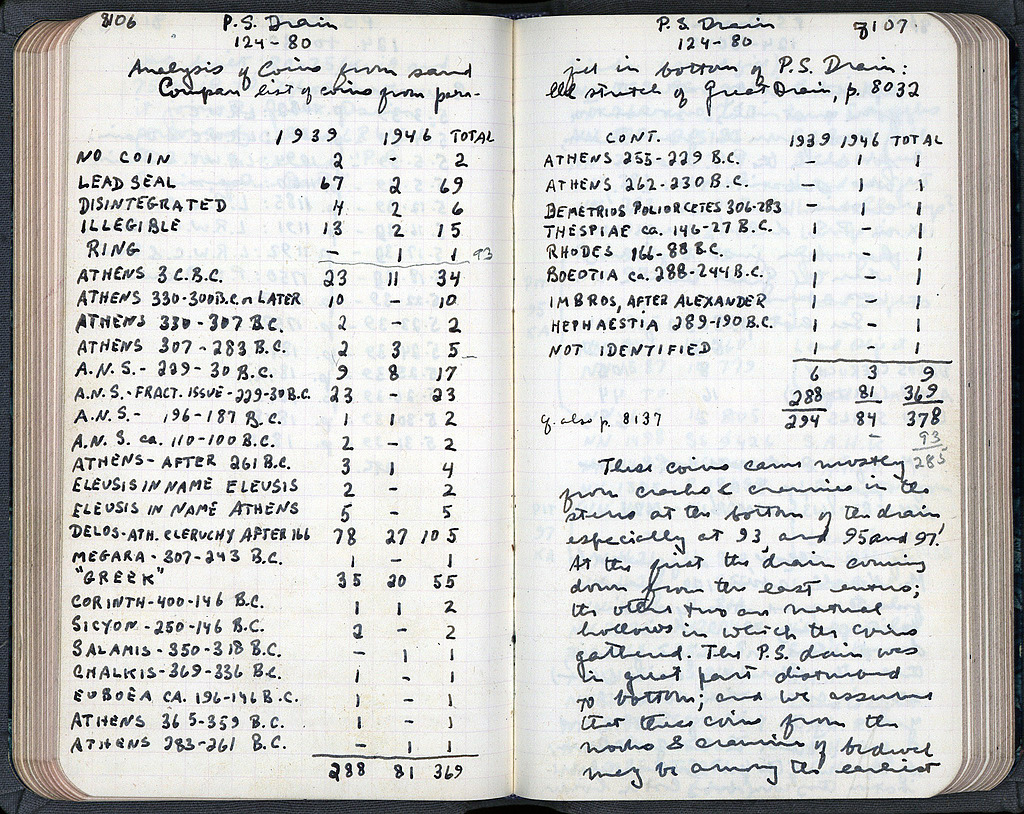 8106 P.S. Drain
124-80
Analysis of Coins from sand
Compare list of coins from para-
1939 1946 TOTAL
NO COIN 2 - 2
LEAD SEAL 67 2 69
DISINTEGRATED 4 2 6
ILLEGIBLE 13 2 15
RING - 1 1 93
ATHENS 3 C.B.C. 23 11 34
ATHENS 330-300 B.C. or LATER 10 - 10
ATHENS 330-307 B.C. 2 2
ATHENS 307-283 B.C. 2 3 5
A.N.S.- 229-30 B.C. 9 8 17
A.N.S.-FRACT. ISSUE-229-30 B.C. 23 23
A.N.S.- 196-187 B.C. 1 2
A.N.S. ca. 110-100 B.C. 2 - 2
ATHENS-AFTER 261 B.C. 3 1 4
ELEUSIS IN NAME ELEUSIS 2 - 2
ELEUSIS IN NAME ATHENS 5 - 5
DELOS-ATH. CLERUCHY AFTER 166 78 27 105
MEGARA-307-243 B.C. 1 - 1
"GREEK" 35 20 55
CORINTH-400-146 B.C. 1 1 2
SICYON-250-146 B.C. 2 - 2
SALAMIS-350-318 B.C. - 1 1
CHALKIS-369-336 B.C. 1 - 1
EUBOEA CA. 196-146 B.C. 1 - 1
ATHENS 365-359 B.C. 1 - 1
ATHENS 283-261 B.C. - 1 1
288 81 369
P.S. Drain 8107
124-80
jet in bottom of P.S. Drain:
llel stretch of Great Drain, p. 8032
CONT. 1939 1946 TOTAL
ATHENS 253-229 B.C. - 1 1
ATHENS 262-230 B.C. - 1 1
DEMETRIOS POLIORCETES 306-283 - 1 1
THESPIAE ca. 146-27 B.C. 1 - 1
RHODES 166-88 B.C. 1 - 1
BOEOTIA ca. 288-244 B.C. 1 - 1
IMBROS, AFTER ALEXANDER 1 - 1
HEPHAESTIA 289-190 B.C. 1 - 1
NOT IDENTIFIED 1 - 1
6 3 9
288 81 369
cf. also p. 8137 294 84 378
- 93
285
These coins came mostly
from cracks & crannies in the
stereo at the bottom of the drain
especially at 93, and 95 and 97.
At the first the drain coming
down from the east enters;
the other two are natural
hollows in which the coins
gathered. The P.S. drain was
in great part disturbed
to bottom; and we assume
that these coins from the
nooks & crannies of bedrock
may be among the earliest